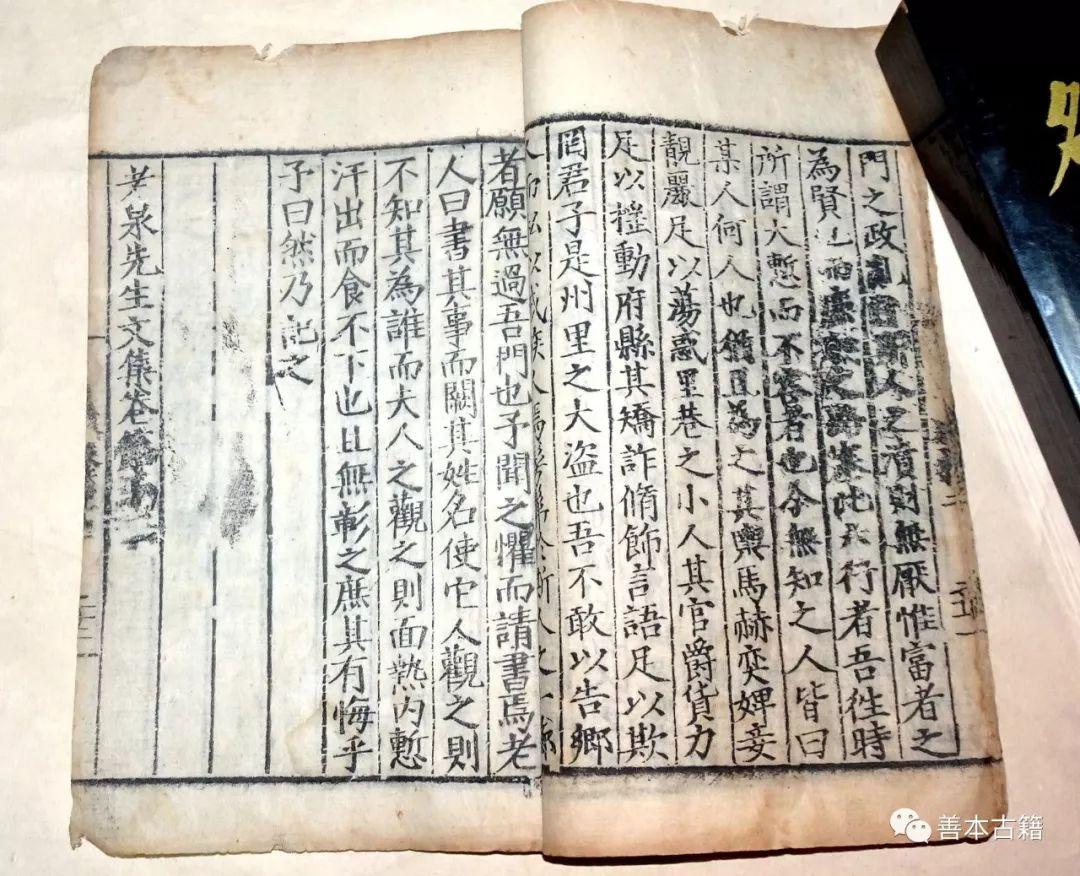 門之政亂自斯人之瀆財無厭惟富者之
為賢也而廉恥之路塞此六行者吾徃時
所謂大慙而不容者也今無知之人皆曰
某人何人也猶且為之其輿馬赫奕婢妾
靚麗足以蕩惑里巷之小人其官爵貨力
足以搖動府縣其矯詐脩飾言語足以欺
罔君子是州里之大盜也吾不敢以告鄉
人而私以戒族人焉於斯人之一
者願無過吾門也予聞之懼而請書焉老
人曰書其事而闕其姓名使它人觀之則
不知其為誰而夫人之觀之則面熱內慙
汗出而食不下也且無彰之庶其有悔乎
予曰然乃記之
老泉先生文集卷第
善本古籍